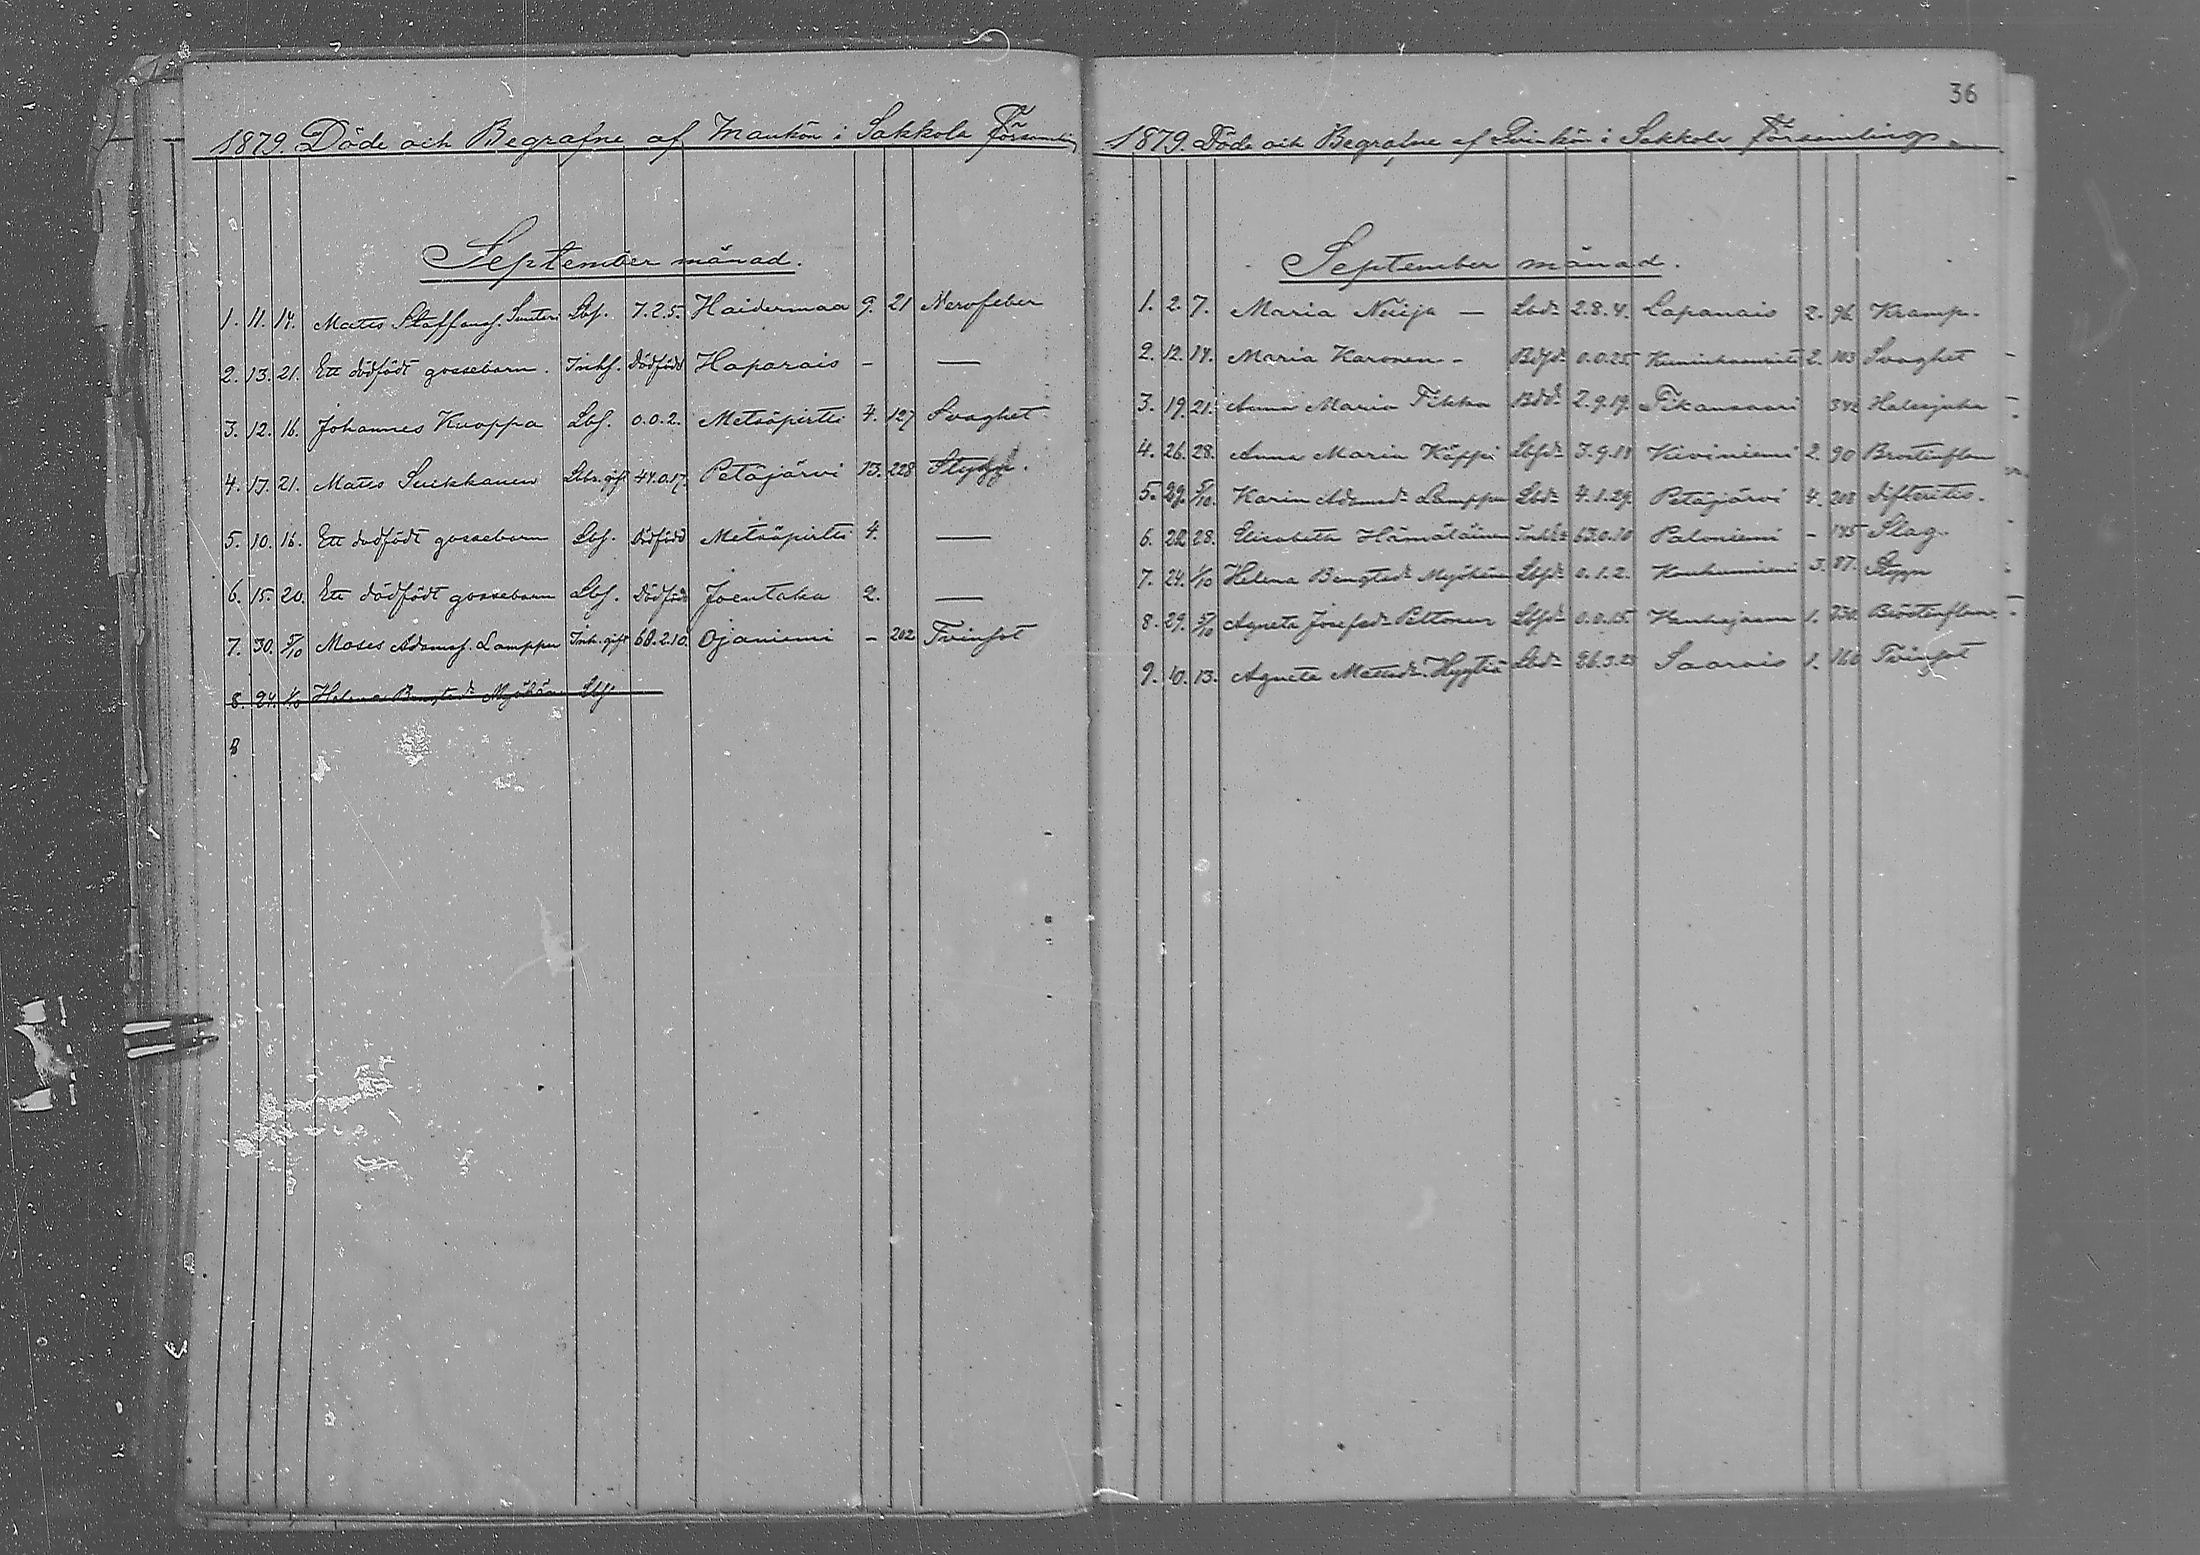 1879. Döde och Begrafne af Mankön i Sakkola Församling
September månad.
1. 11. 14. Matts Staffansf. Sunteri Lbf. 7.2.5. Haidermaa 9. 21 Nervfeber
2. 13. 21. Ett dödfödt gossebarn. Inhf. Dödfödd Haparais - —
3. 12. 16. Johannes Kuoppa Lbf. 0.0.2. Metsäpirtti 4. 127 Svaghet
4. 17. 21. Matts Suikkanen Lbr. gift 44.0.17. Petäjärvi 13. 228 Stygn.
5. 10. 16. Ett dödfödt gossebarn Lbf. Dödfödd Metsäpirtti 4. —
6. 15. 20. Ett dödfödt gossebarn Lbf. Dödfödd Joentaka 2. —
7. 30. 5/10 Moses Adamsf. Lamppu Inh. gift 68.2.10. Ojaniemi - 202 Tvinsot
8. 24. 1/10 Helena Bengtsdr Myöhänen Lbf.
8
36
1879. Döde och Begrafne af Qvinkön i Sakkola Församling
September månad.
1. 2. 7. Maria Näijä — Lbdr 2.8.4. Lapanais 2. 96 Kramp.
2. 12. 14. Maria Karonen - Bdfdr 0.0.25 2. 103 Svaghet
3. 19. 21. Anna Maria Tikka 2.9.19. Tikansaari 342 Halssjuka
4. 26. 28. Anna Maria Käppi Lbfdr 3.9.18 Kiviniemi 2. 90 Bröstinflam
5. 29. 5/10. Karin Adamsdr Lamppu Lbdr 4.1.29. Petäjärvi 4. 208 difteritis.
6. 22 28. Elisabeth Hämäläinen 63.0.10 Paloniemi - 145 Slag.
7. 24. 1/10 Helena Bengtsdr Myöhänen Lbfdr 0.1.2. 3. 87. Stygn
8. 29. 5/10 Agneta Josefsdr Peltonen Lbfdr 0.0.15. 1. 230. Bröstinflam.
9. 10. 13. Agneta Mattsdr Hyytiä Lbdr 26.3.25 Saarois 1. 160 Tvinsot